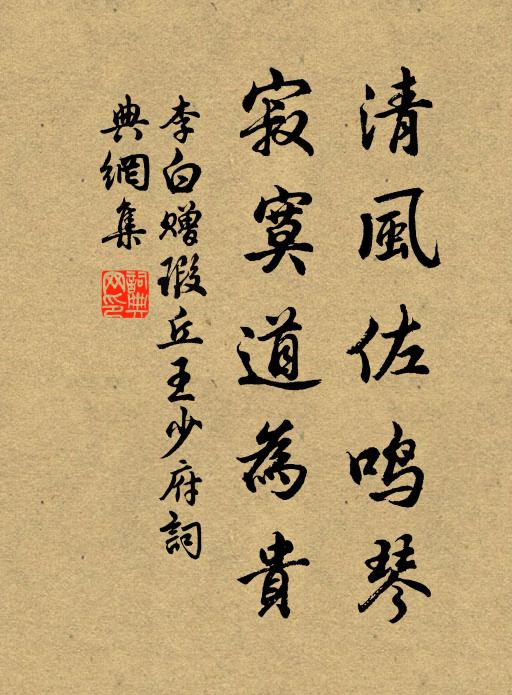 清風佐鳴琴
寂寞道為貴
李白赠瑕丘王少府詞
典網集
詞典
网印